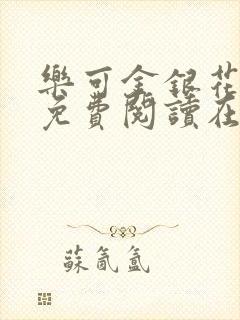 樂可金銀花
免費閱讀在
蘇氤氳